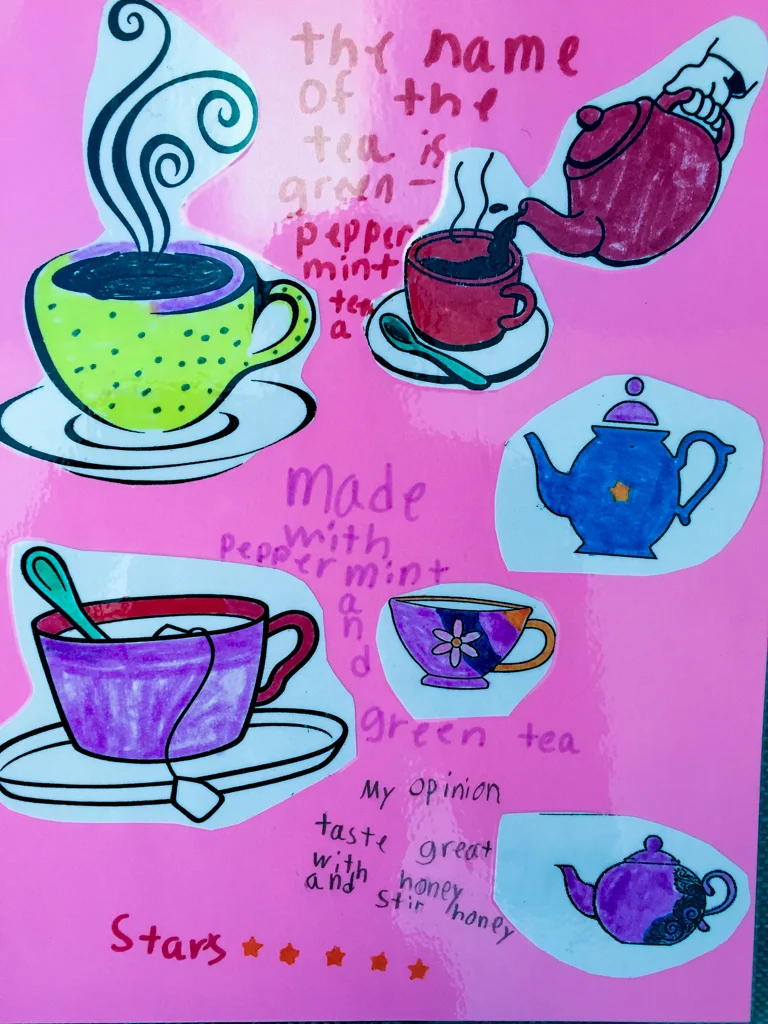 the name
of the
tea is
green -
pepper
mint
tea
a
made
with
pepper mint
a
n
d
green tea
My opinion
taste great
with honey
and stir honey
Stars